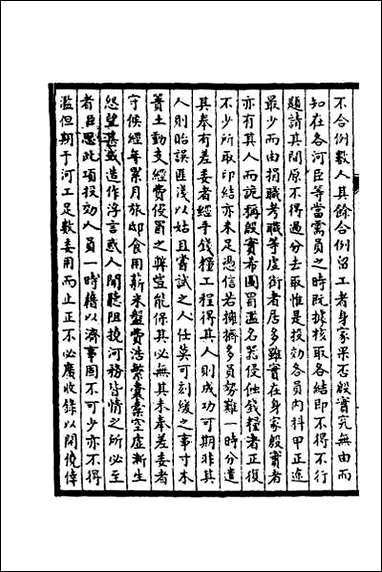 不合例數人其餘合例留工者身家果否殷實究無由而
知在各河臣等當需員之時既據核取各結即不得不行
題請其間原不得過分去取惟是投効各員內科甲正途
最少而由捐職考職等虛銜者居多雖實在身家殷實者
亦有其人而詭稱殷實希圖冒濫名器侵蝕錢糧者正復
不少所取印結亦未足憑信若擁擠多員勢難一時分遣
其奉有差委者經手錢糧工程得其人則成功可期非其
人則貽誤匪淺以姑且嘗試之人任莫可刻緩之事寸木
簣土動支經費侵冒之弊豈能保其必無其未奉差委者
守候經年累月旅邸食用薪米盤費浩繁囊槖空虛漸生
怨望甚或造作浮言惑人聞聽阻撓河務皆情之所必至
者臣思此項投効人員一時藉以濟事固不可少亦不得
濫但期于河工足敷委用而止正不必廣收錄以開僥倖